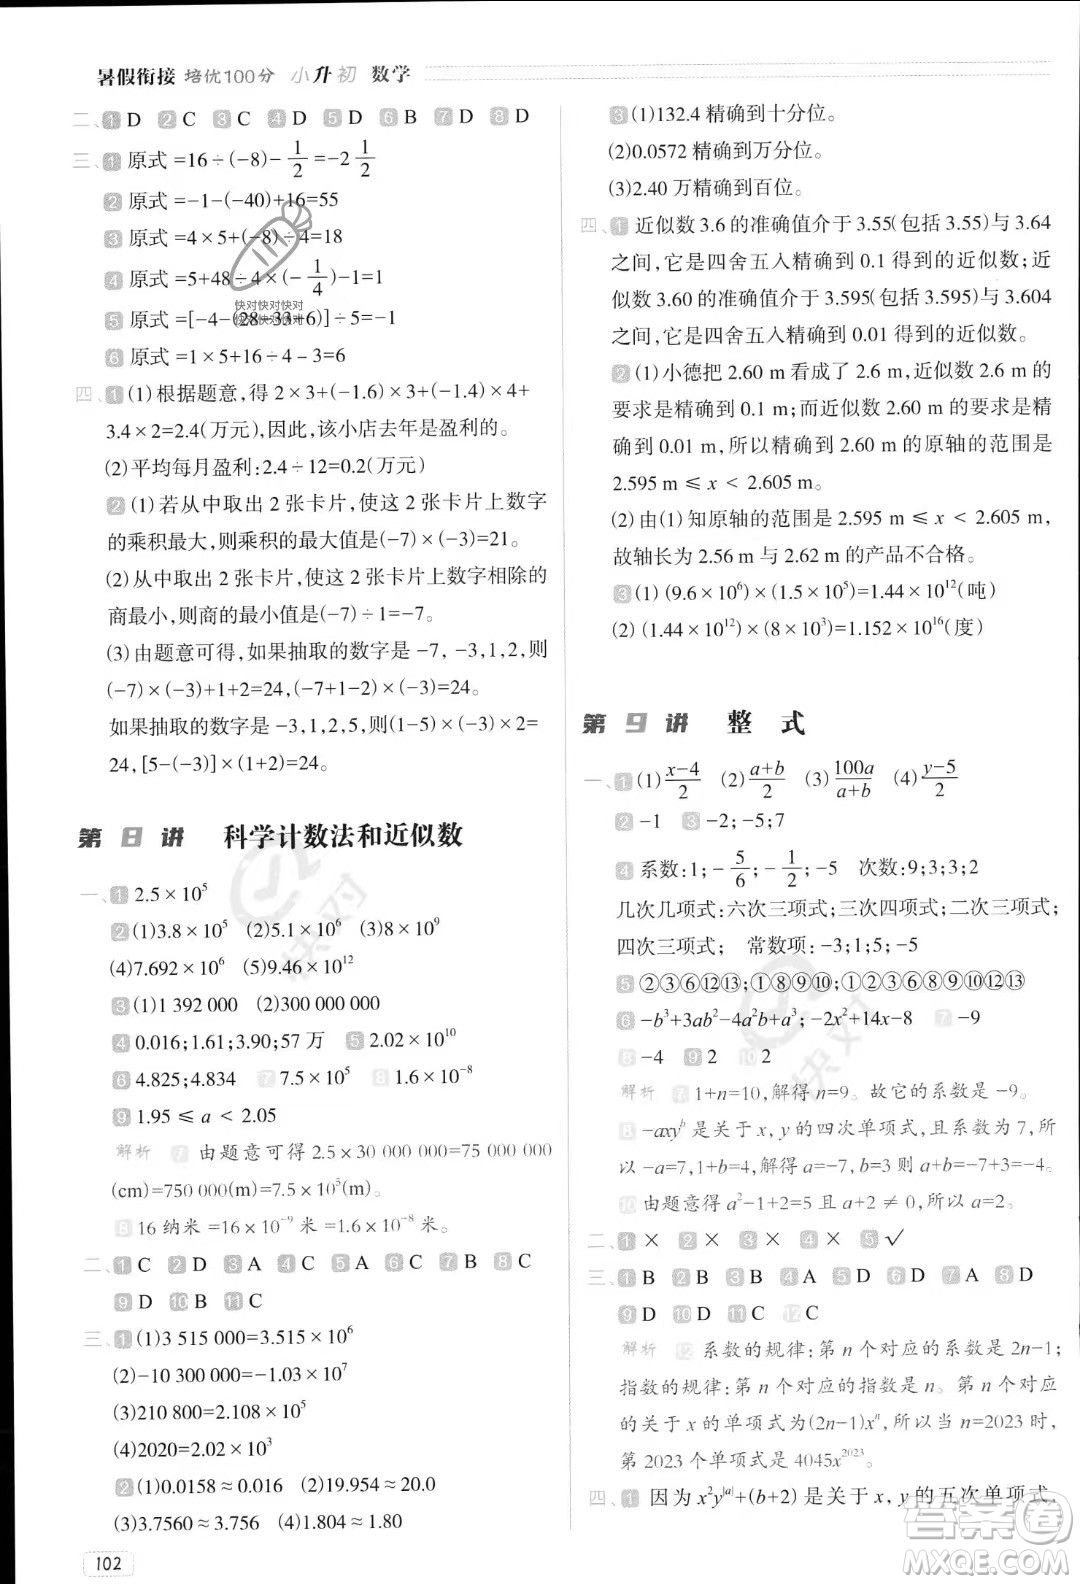 暑假衔接 培优100分 小升初 数学
二、1 D 2 C 3 C 4 D 5 D 6 B 7 D 8 D
三、1 原式 =16÷(-8)-1/2=-2 1/2
2 原式 =-1-(-40)+16=55
3 原式 =4×5+(-8)÷4=18
4 原式 =5+48÷4×(-1/4)+1=1
5 原式 =[-4-(28-33+6)]÷5=-1
6 原式 =1×5+16÷4-3=6
四、1 (1)根据题意,得 2×3+(-1.6)×3+(-1.4)×4+
3.4×2=2.4(万元),因此,该小店去年是盈利的。
(2)平均每月盈利:2.4÷12=0.2(万元)
2 (1)若从中取出 2 张卡片,使这 2 张卡片上数字
的乘积最大,则乘积的最大值是(-7)×(-3)=21。
(2)从中取出 2 张卡片,使这 2 张卡片上数字相除的
商最小,则商的最小值是(-7)÷1=-7。
(3)由题意可得,如果抽取的数字是 -7, -3,1,2,则
(-7)×(-3)+1+2=24,(1-7)×(-3)=24。
如果抽取的数字是 -3,1,2,5,则(1-5)×(-3)×2=
24,[5-(-3)]×(1+2)=24。
第8讲 科学计数法和近似数
一、1 2.5×10⁵
2 (1)3.8×10⁵ (2)5.1×10⁶ (3)8×10⁹
(4)7.692×10⁶ (5)9.46×10¹²
3 (1)1 392 000 (2)300 000 000
4 0.016;1.61;3.90;57 万 5 2.02×10¹⁰
6 4.825;4.834 7 7.5×10⁵ 8 1.6×10⁻⁸
9 1.95 ≤ a < 2.05
解析 7 由题意可得 2.5×30 000 000=75 000 000
(cm)=750 000(m)=7.5×10⁵(m)。
8 16 纳米 =16×10⁻⁹ 米 =1.6×10⁻⁸ 米。
二、1 C 2 D 3 A 4 C 5 A 6 C 7 B 8 C
9 D 10 B 11 C
三、1 (1)3 515 000=3.515×10⁶
(2)-10 300 000=-1.03×10⁷
(3)210 800=2.108×10⁵
(4)2020=2.02×10³
2 (1)0.0158≈0.016 (2)19.954≈20.0
(3)3.7560≈3.756 (4)1.804≈1.80
102
3 (1)132.4 精确到十分位。
(2)0.0572 精确到万分位。
(3)2.40 万精确到百位。
四、1 近似数 3.6 的准确值介于 3.55(包括 3.55)与 3.64
之间,它是四舍五入精确到 0.1 得到的近似数;近
似数 3.60 的准确值介于 3.595(包括 3.595)与 3.604
之间,它是四舍五入精确到 0.01 得到的近似数。
2 (1)小德把 2.60 m 看成了 2.6 m,近似数 2.6 m 的
要求是精确到 0.1 m;而近似数 2.60 m 的要求是精
确到 0.01 m,所以精确到 0.01 m 的原轴的范围是
2.595 m ≤ x < 2.605 m。
(2)由(1)知原轴的范围是 2.595 m ≤ x < 2.605 m,
故轴长为 2.56 m 与 2.62 m 的产品不合格。
3 (1) (9.6×10⁶)×(1.5×10⁵)=1.44×10¹²(吨)
(2) (1.44×10¹²)×(8×10³)=1.152×10¹⁶(度)
第9讲 整 式
一、1 (1)x-4/2 (2)a+b/2 (3)100a/a+b (4)y-5/2
2 -1 3 -2;-5;7
4 系数:1;-5/6;-1/2;-5 次数:9;3;3;2
几次几项式:六次三项式;三次四项式;二次三项式;
四次三项式; 常数项:-3;1;5;-5
5 ②③⑥⑨⑫⑬;①⑧⑩⑪;①②③⑥⑧⑨⑩⑪⑫⑬
6 -b³+3ab²-4a²b+a³;-2x³+x²+14x-8 7 -9
8 -4 9 2 10 2
解析 7 1+n=10,解得 n=9。故它的系数是 -9。
8 -axyᵇ 是关于 x, y 的四次单项式,且系数为 7,所
以 -a=7,1+b=4,解得 a=-7,b=3 则 a+b=-7+3=-4。
10 由题意得 a²-1+2=5 且 a+2 ≠ 0,所以 a=2。
二、1 × 2 × 3 × 4 × 5 ✓
三、1 B 2 B 3 B 4 A 5 D 6 D 7 A 8 D
9 D 10 D 11 C 12 C
解析 12 系数的规律:第 n 个对应的系数是 2n-1;
指数的规律:第 n 个对应的指数是 n。第 n 个对应
的关于 x 的单项式为(2n-1)xⁿ,所以当 n=2023 时,
第 2023 个单项式是 4045x²⁰²³。
四、1 因为 x²y|ᵃ|+(b+2)是关于 x, y 的五次单项式,
快对快对快对
快对快对快对
快对
快对
答案圈
MXQE.COM